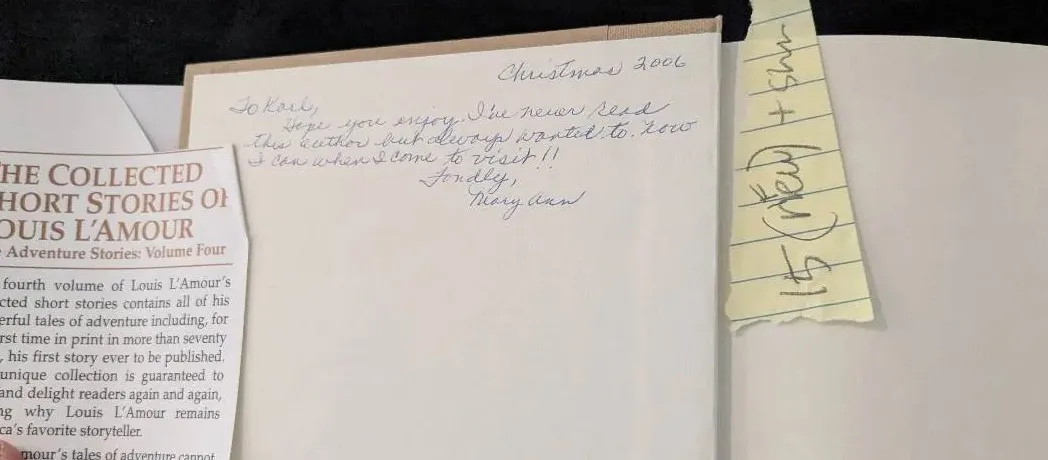 Christmas 2006
To Karl,
Hope you enjoy. I've never read
this author but always wanted to. Now
I can when I come to visit!!
Fondly,
Mary Ann
15 (new) + shu
HE COLLECTED
HORT STORIES OF
OUIS L'AMOUR
Adventure Stories: Volume Four
fourth volume of Louis L'Amour's
cted short stories contains all of his
erful tales of adventure including, for
rst time in print in more than seventy
, his first story ever to be published.
unique collection is guaranteed to
and delight readers again and again,
ng why Louis L'Amour remains
ca's favorite storyteller.
mour's tales of adventure cannot